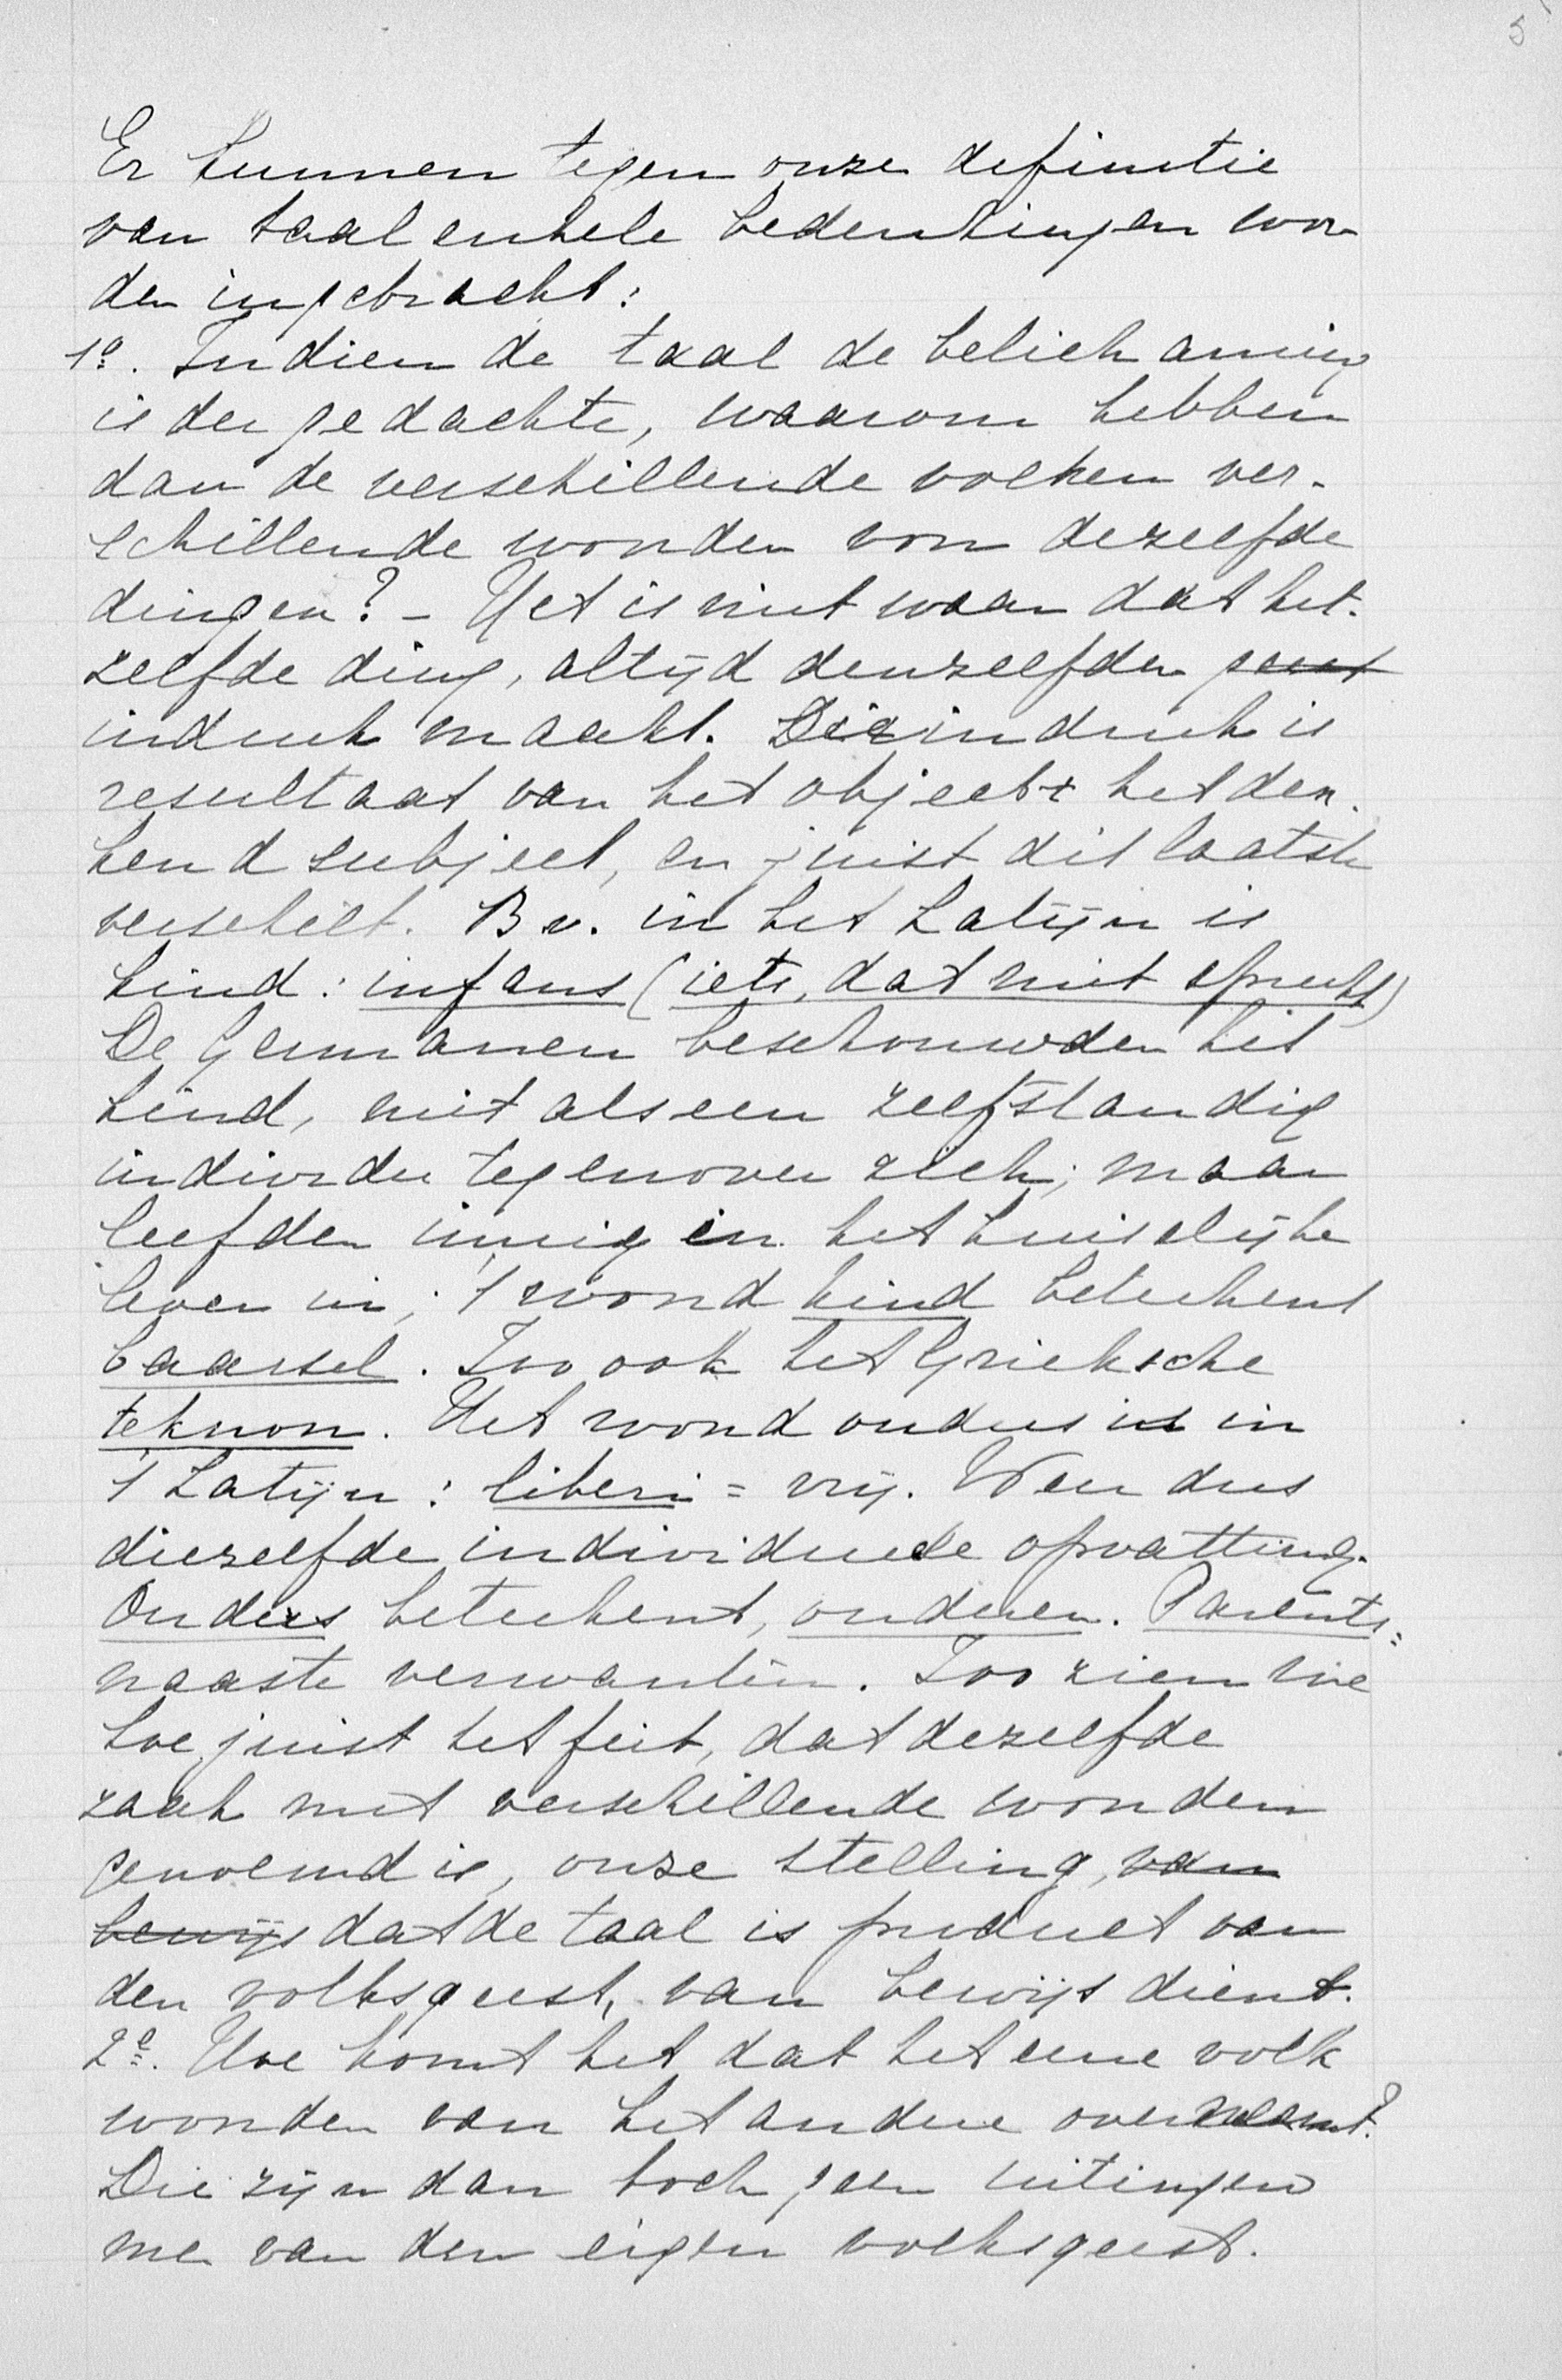 5
Er kunnen tegen onze definitie
van taal enkele bedenkingen wor-
den ingebracht:
1º. Indien de taal de belichaming
is der gedachte, waarom hebben
dan de verschillende volken ver-
schillende woorden voor dezelfde
dingen? - Het is niet waar dat het-
zelfde ding, altijd denzelfden
indruk maakt. Die indruk is
resultaat van het object + het den-
kend subject, en juist dit laatste
verschilt. Bv. in het Latijn is
kind: infans (iets, dat niet spreekt)
De Germanen beschouwden het
kind, niet als een zelfstandig
individu tegenover zich; maar
leefden innig in het huiselijke
leven in; 't woord kind beteekent
baarsel. Zoo ook het Grieksche
teknon. Het woord ouders is in
't Latijn: liberi = vrij. Weer dus
diezelfde individueele opvatting.
Ouders beteekent, ouderen. Parents =
naaste verwanten. Zoo zien we
hoe juist het feit, dat dezelfde
zaak met verschillende woorden
genoemd is, onze stelling, van
bewijs dat de taal is product van
den volksgeest, van bewijs dient.
2e. Hoe komt het dat het eene volk
woorden van het andere overneemt?
Die zijn dan toch geen uitingen
mee van den eigen volksgeest.